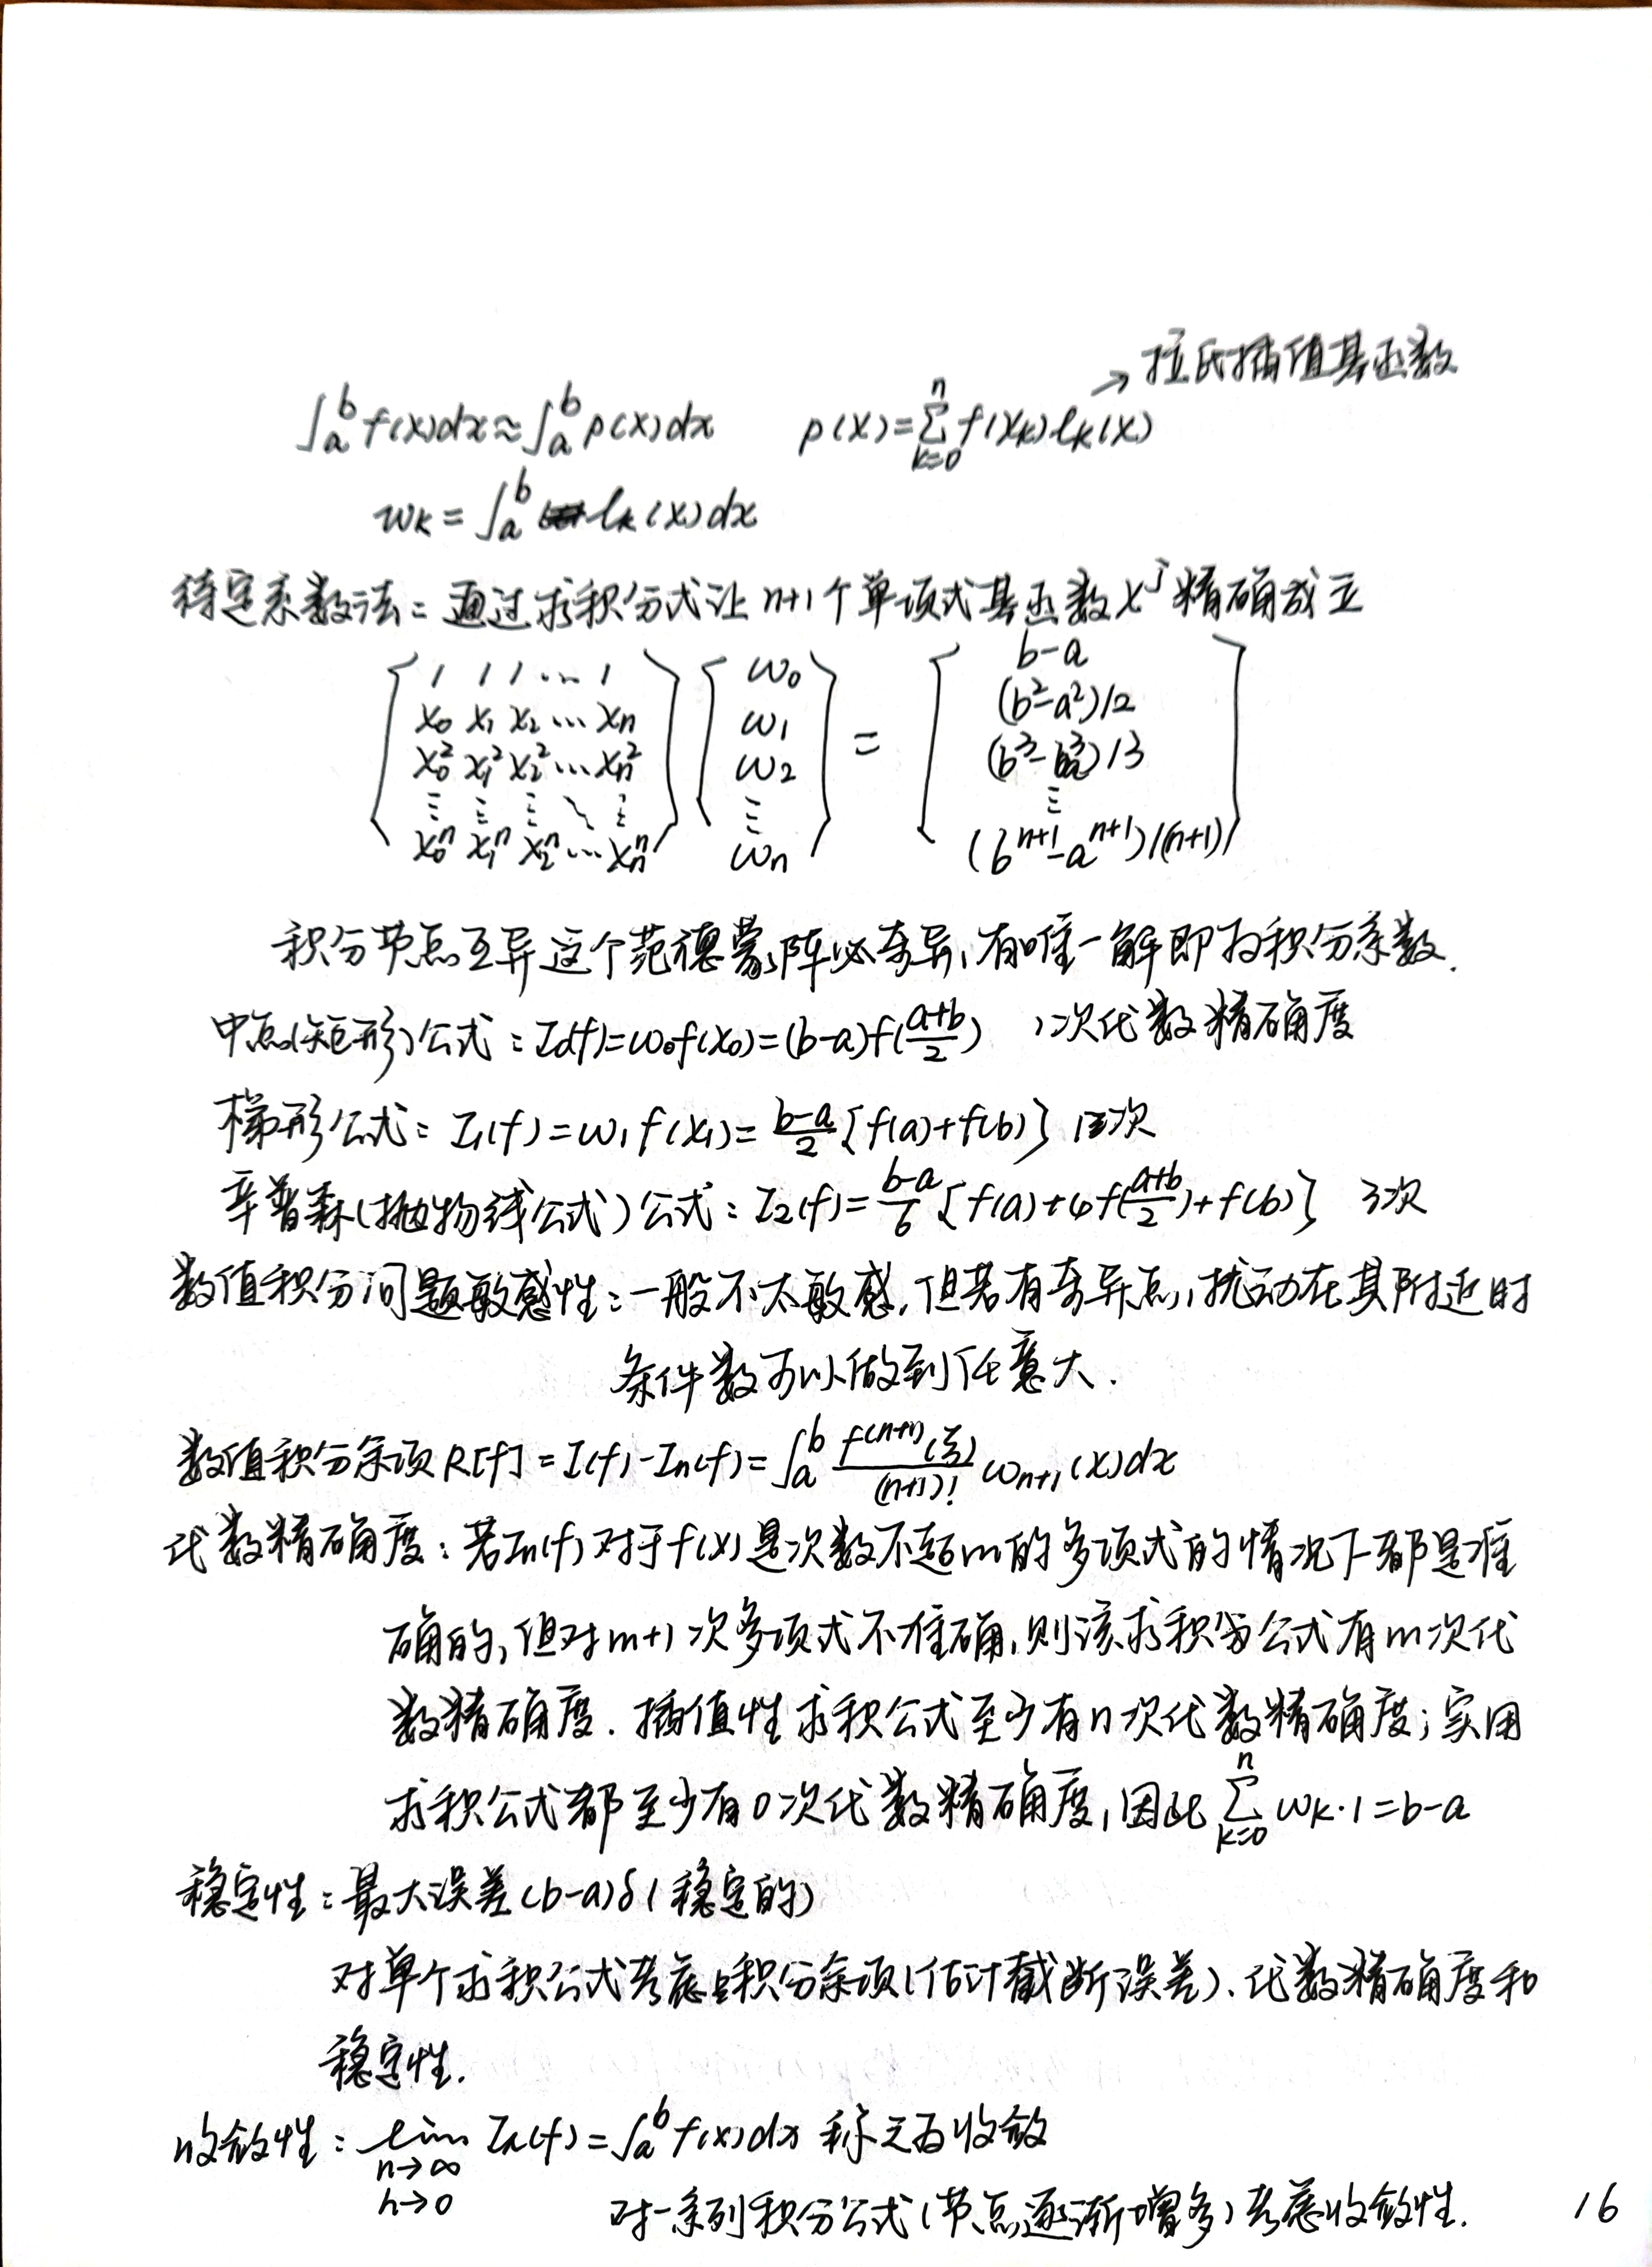 → 拉氏插值基函数
∫_a^b f(x)dx ≈ ∫_a^b p(x)dx   p(x) = ∑_{k=0}^n f(x_k) l_k(x)
w_k = ∫_a^b l_k(x)dx
待定系数法：通过求积分式让 n+1 个单项式基函数 x^j 精确成立
[1 1 1 … 1] [w_0] = [b-a]
[x_0 x_1 x_2 … x_n] [w_1] [(b^2-a^2)/2]
[x_0^2 x_1^2 x_2^2 … x_n^2] [w_2] [(b^3-a^3)/3]
[⋮ ⋮ ⋮ ⋱ ⋮] [⋮] [⋮]
[x_0^n x_1^n x_2^n … x_n^n] [w_n] [(b^{n+1}-a^{n+1})/(n+1)]
积分节点互异这个范德蒙阵必奇异，有唯一解即为积分系数.
中点(矩形)公式：I_0(f)=w_0f(x_0)=(b-a)f(\frac{a+b}{2})   1次代数精确度
梯形公式：I_1(f)=w_1f(x_1)=\frac{b-a}{2}[f(a)+f(b)]   1次
辛普森(抛物线公式)公式：I_2(f)=\frac{b-a}{6}[f(a)+4f(\frac{a+b}{2})+f(b)]   3次
数值积分问题敏感性：一般不太敏感，但若有奇异点，扰动在其附近时
条件数可以做到任意大.
数值积分余项 R[f]=I(f)-I_n(f)=∫_a^b \frac{f^{(n+1)}(ξ)}{(n+1)!} ω_{n+1}(x)dx
代数精确度：若I_n(f)对于f(x)是次数不超m的多项式的情况下都是准
确的，但对m+1次多项式不准确，则该求积分公式有m次代
数精确度. 插值性求积公式至少有n次代数精确度；实用
求积公式都至少有0次代数精确度，因此 ∑_{k=0}^n w_k·1=b-a
稳定性：最大误差(b-a)δ(稳定的)
对单个求积公式考虑积分余项(估计截断误差)、代数精确度和
稳定性.
收敛性：lim_{n→∞, h→0} I_n(f)=∫_a^b f(x)dx 称之为收敛
对一系列积分公式(节点逐渐增多)考虑收敛性.
16